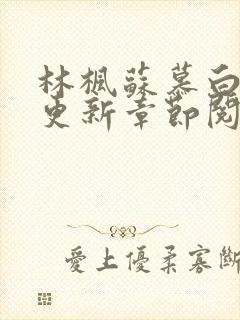 林楓蘇慕白
更新章節閱
愛上優柔寡斷